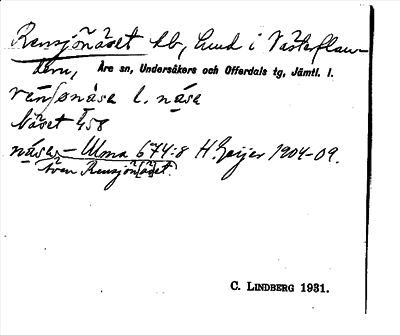 Rensjönäset hb, Lund i Västerflam-
Åre sn, Undersåkers och Offerdals tg, Jämtl. l.
l. nása
Näset 458
nása – Ulma 674:8 H. Geijer 1904-09.
även Rensjönäset.
C. LINDBERG 1931.